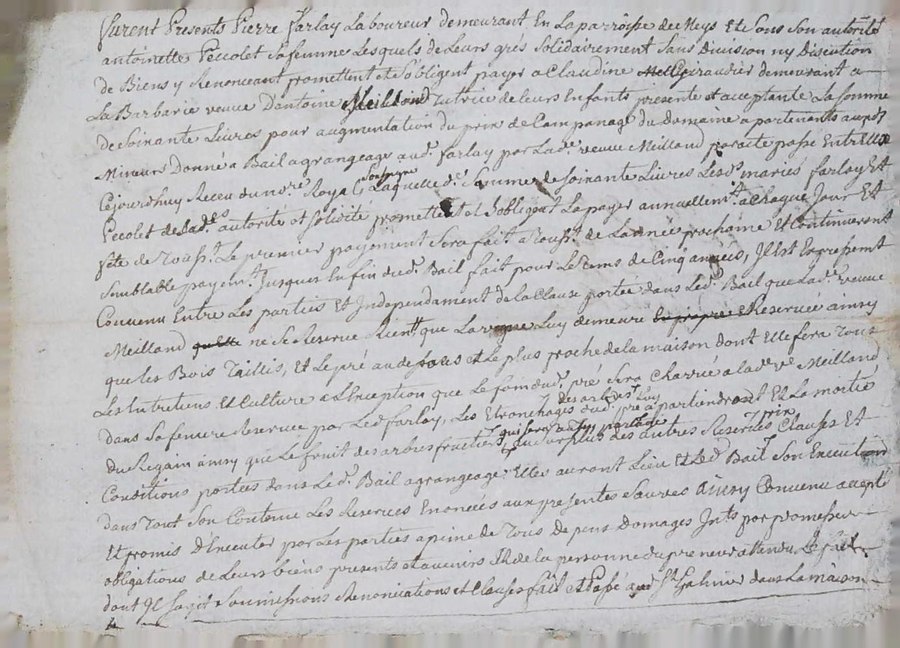 furent Presents Pierre farlay Laboureur demeurant En La parroisse de Meys Et de Sous Son autorité
antoinette Pecolet Sa femme Lesquels de Leurs grés Solidairement Sans division ny discution
de Biens y Renonceant promettent et Sobligent payer a Claudine giraudier demeurant a
La Barbarie veuve d'antoine Meilland tutrice de leurs Enfants presente et acceptante La Somme
de Soixante Livres pour augmentation du prix de Campanage du domaine apartenants auxds
Mineurs Donné a Bail agrangeage aud. farlay par Lade. veuve Meilland par acte passé Entre Eux
Cejourdhuy Receu du nre. Royal Soussigné Laquelle de. Somme de soixante Livres Lesds. mariés farlay Et
Pecolet de Sade. autorité et Solidité promettent et Sobligent La payer annuellemt. a Chaque Jour Et
fête de Toussts. Le premier payement Sera fait a Tousst. de Lannée prochaine Et Continueront
Semblable payemt. Jusques En fin dud. Bail fait pour Le Tems de Cinq années, Il Est Expressemt
Convenu Entre Les parties Et Independament de la Clause portée dans Led. Bail que Lade. veuve
Meilland ne Se Reserve Rient que La vigne Luy demeure Reservée ainsy
que les Bois Taillis, Et Le pré au de sous et Le plus proche de la maison dont Elle fera Tous
Les Entretiens Et Culture a LException que Le foin dud. pré Sera Charrié a lade. ve. Meilland
dans Sa feniere Reservee par Led. farlay, Les Etronchages des arbres dud. pré Luy apartiendront Et La moitié
du Regain ainsy que Le fruit des arbres fructiers qui Sera En Son partage, au Surplus des autres Reserves prix Clauses Et
Conditions portées dans Led. Bail agrangeage Elles auront Lieu Et Led. Bail Son Execution
dans Tout Son Contenu Les Reserves Enoncées aux presentes Sauves ainsy Convenu accepté
Et promis d'Executer par Les parties a peine de Tous depens Domages Ints. par promesses
obligations de Leurs biens presents et avenirs Et de la personne du preneur attendu Le fait
dont Il Sagit Soumissions Renonciations et Clauses fait Et Passé aud. St. galmier dans La maison